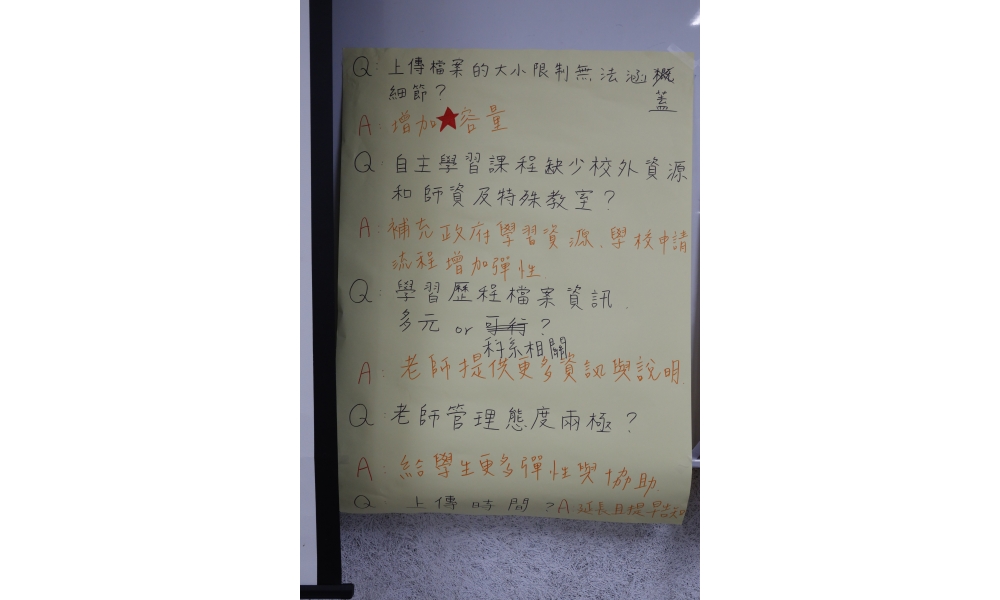 Q: 上傳檔案的大小限制無法涵概
蓋
細節？
A: 增加★容量
Q: 自主學習課程缺少校外資源
和師資及特殊教室？
A: 補充政府學習資源.學校申請
流程增加彈性
Q: 學習歷程檔案資訊.
多元 or ？
科系相關
A: 老師提供更多資訊與說明.
Q: 老師管理態度兩極？
A: 給學生更多彈性與協助
Q 上傳時間？A 延長且提早告知